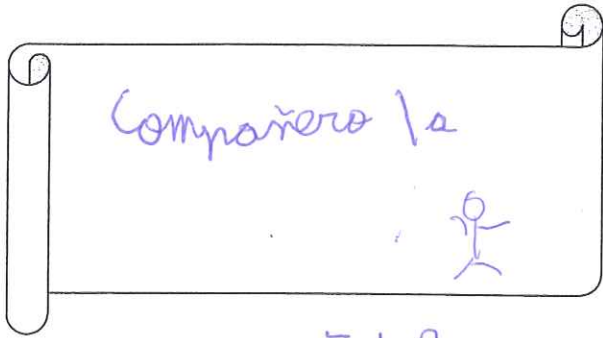 Compañero \a